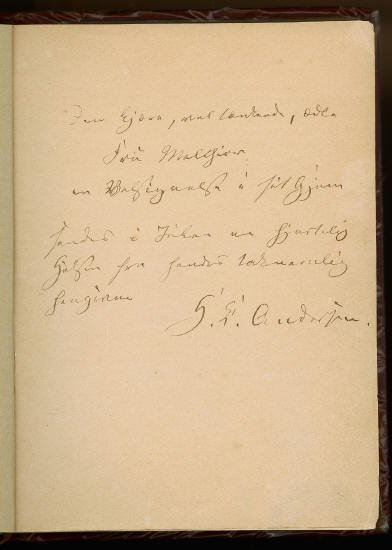 Den kjære, veltænkende, ædle
Fru Melchior
en Velsignelse i sit Hjem
sendes i Julen en hjertelig
Hilsen fra hendes taknemmelig
hengivne
H. C. Andersen.